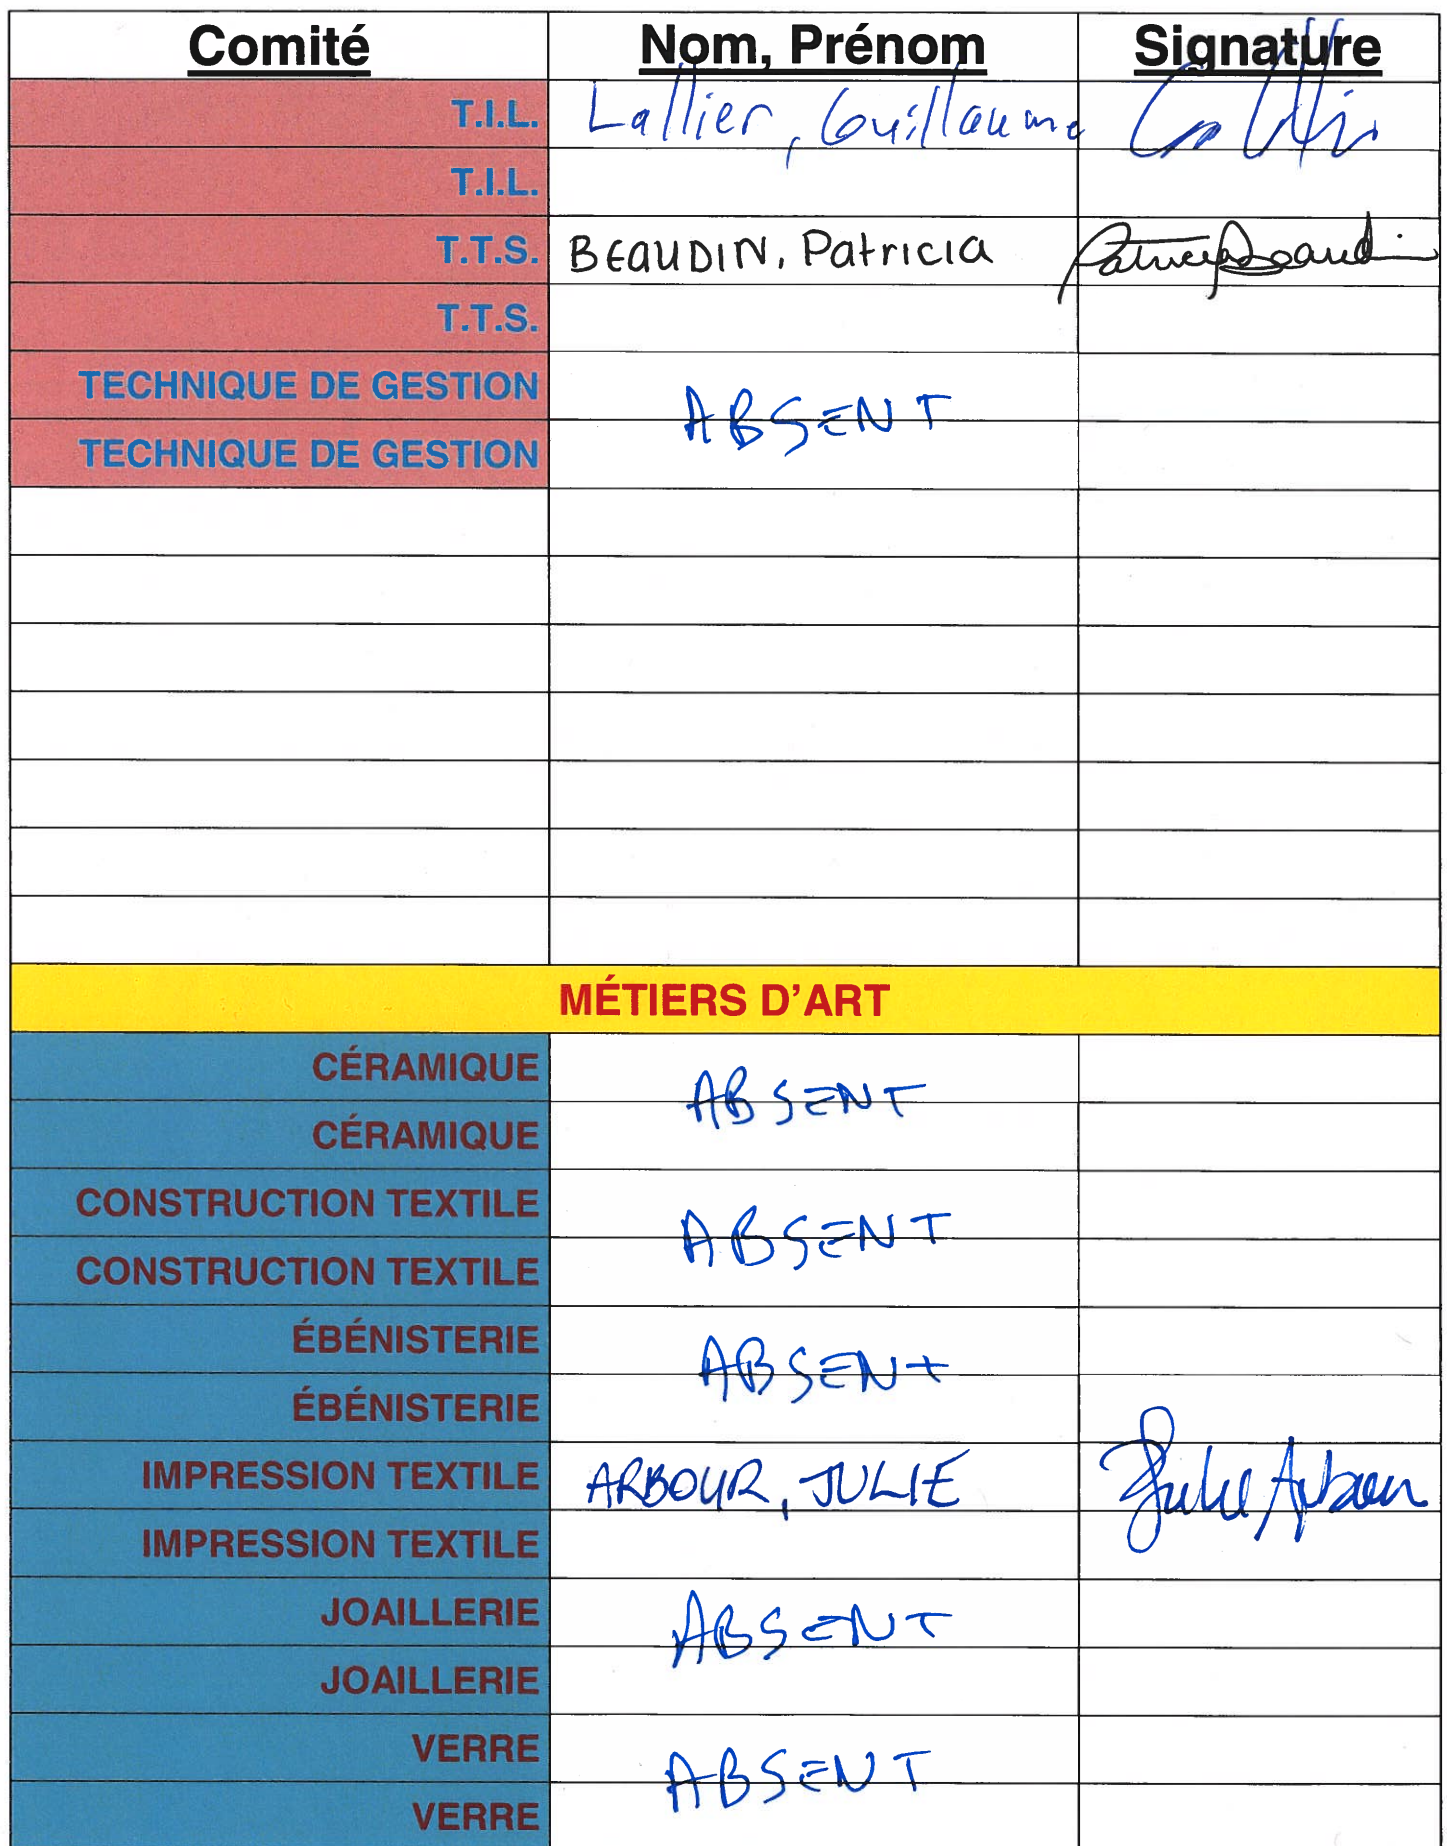 Comité Nom, Prénom Signature
T.I.L. Lallier, Guillaume
T.I.L.
T.T.S. BEAUDIN, Patricia Patricia Beaudin
T.T.S.
TECHNIQUE DE GESTION
ABSENT
TECHNIQUE DE GESTION
MÉTIERS D'ART
CÉRAMIQUE
ABSENT
CÉRAMIQUE
CONSTRUCTION TEXTILE
ABSENT
CONSTRUCTION TEXTILE
ÉBÉNISTERIE
ABSENT
ÉBÉNISTERIE
IMPRESSION TEXTILE ARBOUR, JULIE Julie Arbour
IMPRESSION TEXTILE
JOAILLERIE
ABSENT
JOAILLERIE
VERRE
ABSENT
VERRE